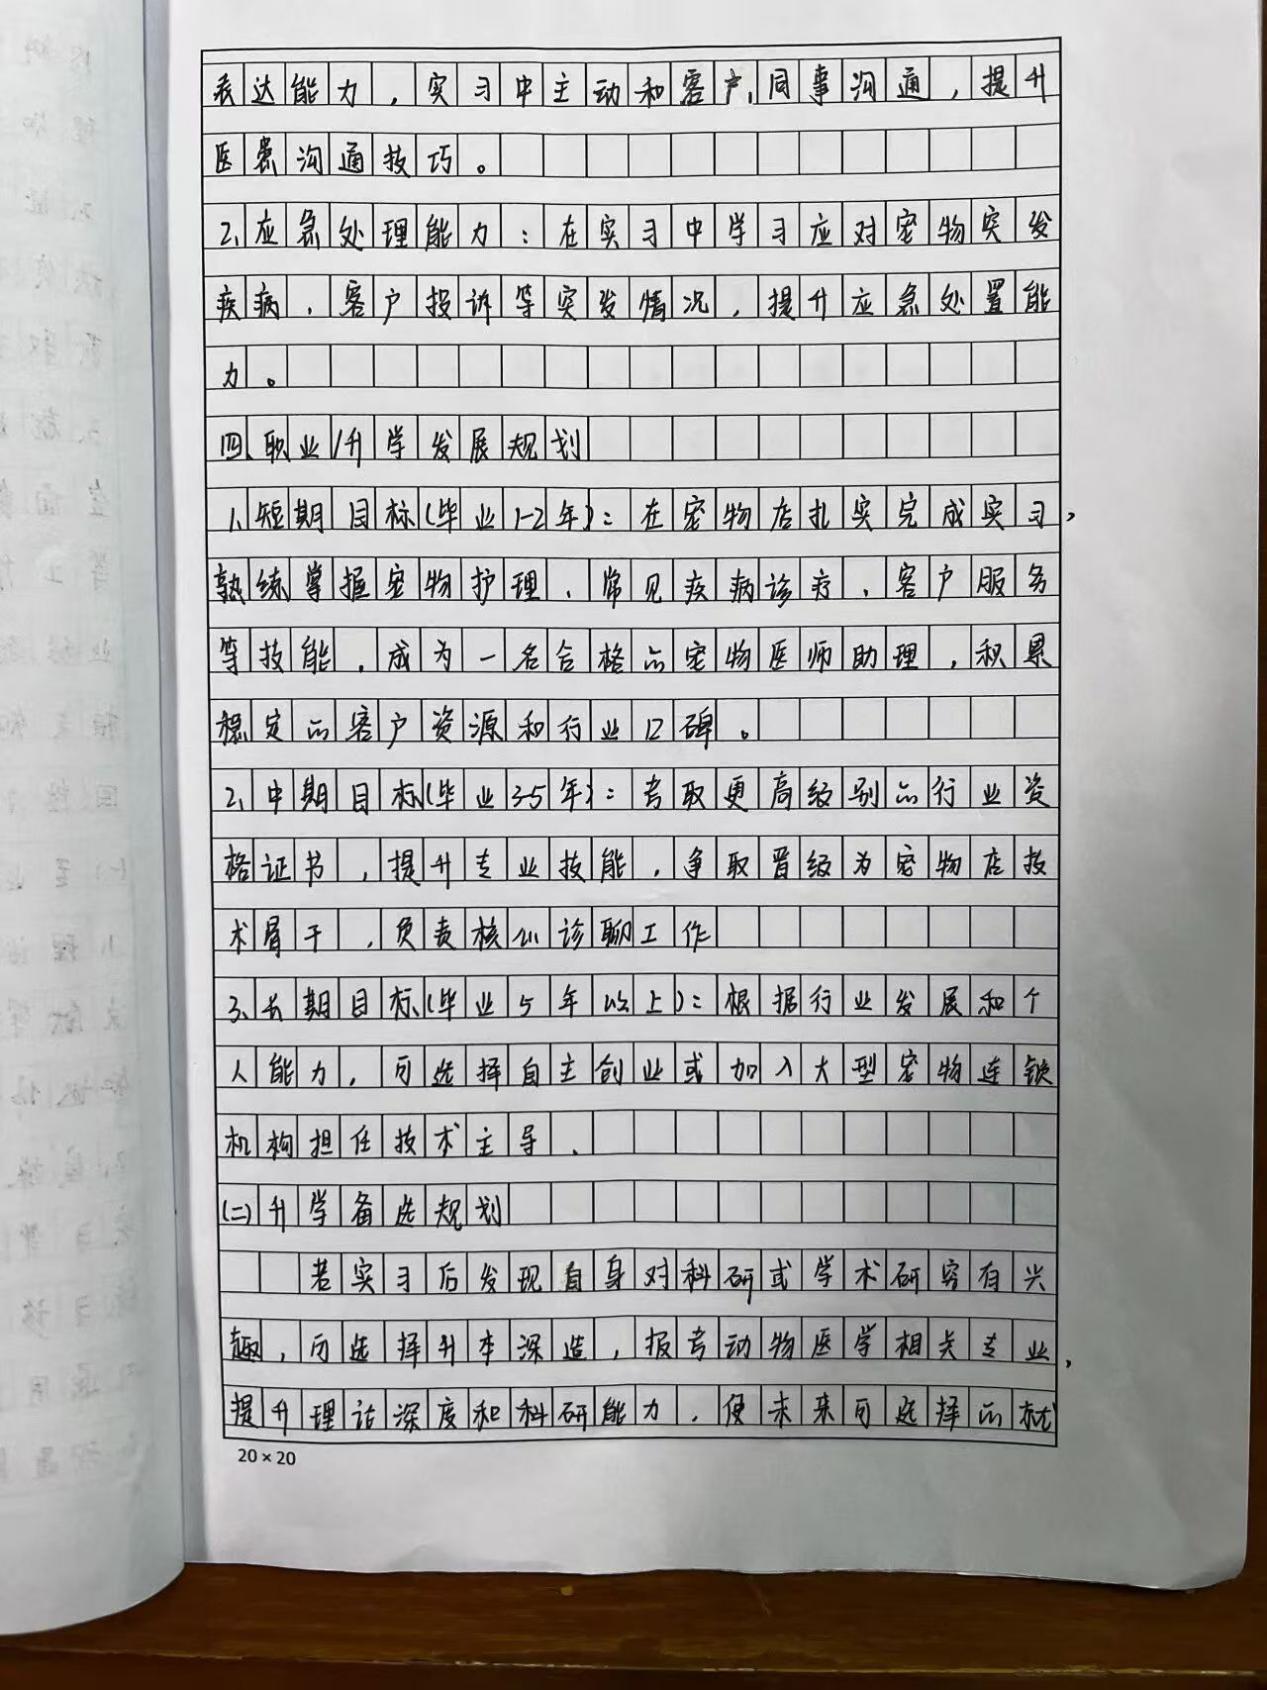 表达能力，实习中主动和客户、同事沟通，提升
医患沟通技巧。
2、应急处理能力：在实习中学习应对宠物突发
疾病、客户投诉等突发情况，提升应急处置能
力。
四、职业/升学发展规划
1、短期目标(毕业1-2年)：在宠物店扎实完成实习，
熟练掌握宠物护理、常见疾病诊疗、客户服务
等技能，成为一名合格的宠物医师助理，积累
稳定的客户资源和行业口碑。
2、中期目标(毕业3-5年)：考取更高级别的行业资
格证书，提升专业技能，争取晋级为宠物店技
术骨干，负责核心诊聊工作
3、长期目标(毕业5年以上)：根据行业发展和个
人能力，可选择自主创业或加入大型宠物连锁
机构担任技术主导、
(二)升学备选规划
若实习后发现自身对科研或学术研究有兴
趣，可选择升本深造，报考动物医学相关专业，
提升理论深度和科研能力，使未来可选择的就
20×20